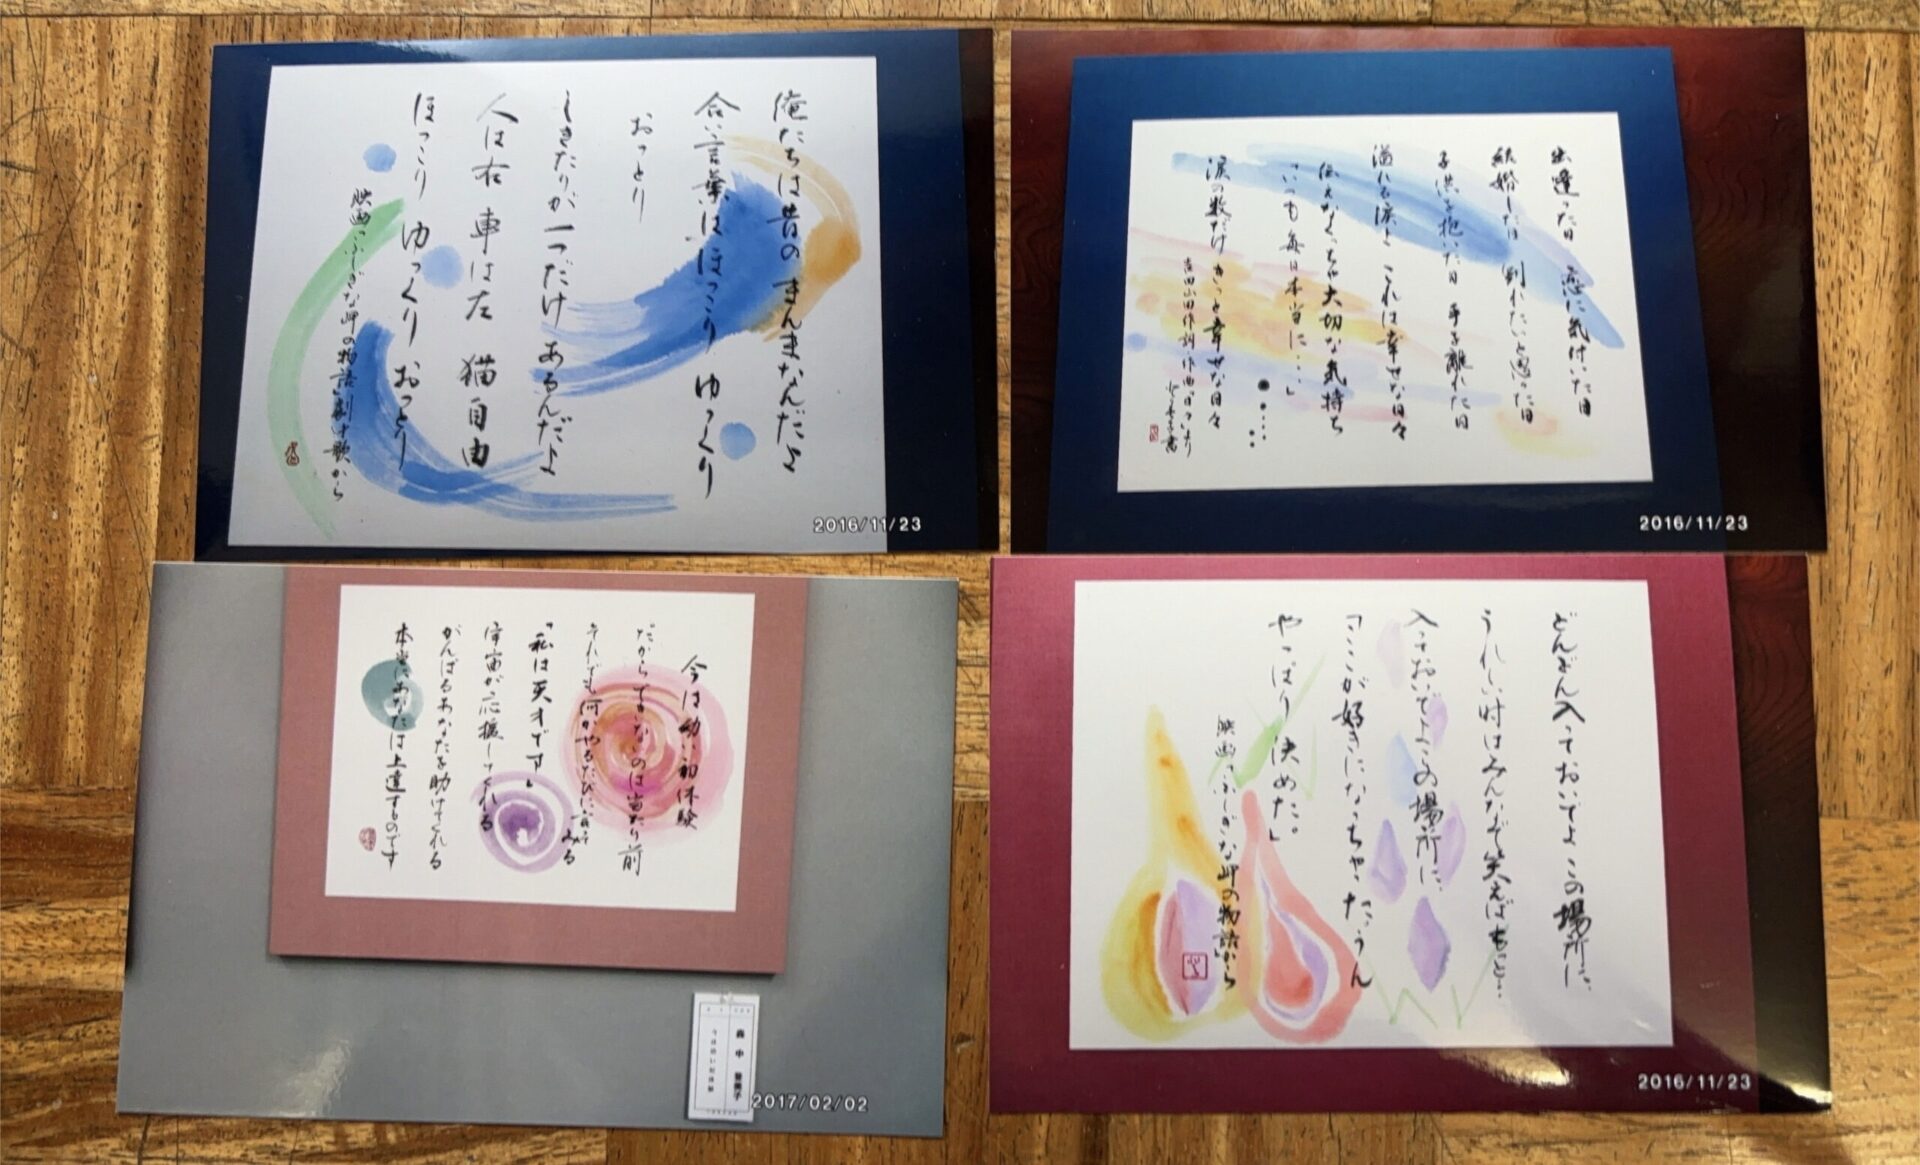 俺たちは昔のまんまなんだよ
合い言葉はほっこり ゆっくり
おっとり
しきたりが一つだけあるんだよ
人は右 車は左 猫自由
ほっこり ゆっくり おっとり
映画「ふしぎな岬の物語」劇中歌から
2016/11/23
出逢った日 恋に気付いた日
結婚した日 別れたいと思った日
子供を抱いた日 手を離れた日
溢れる涙よ これは幸せな日々
伝えなくっちゃ大切な気持ち
「いつも毎日本当に・・・・」
涙の数だけ きっと幸せな日々
吉田山田作詞・作曲「日々」より
2016/11/23
今は幼い初体験
だからできないのは当たり前
それでも何かやるたびに言ってみる
「私は天才です」
宇宙が応援してくれる
がんばるあなたを助けてくれる
本当にあなたは上達するものです
今は幼い初体験
2017/02/02
どんどん入っておいでよ この場所に、
うれしい時はみんなで笑えばもっと…
入っておいでよ この場所に、
「ここが好きになっちゃった うん
やっぱり決めた。」
映画「ふしぎな岬の物語」から
2016/11/23